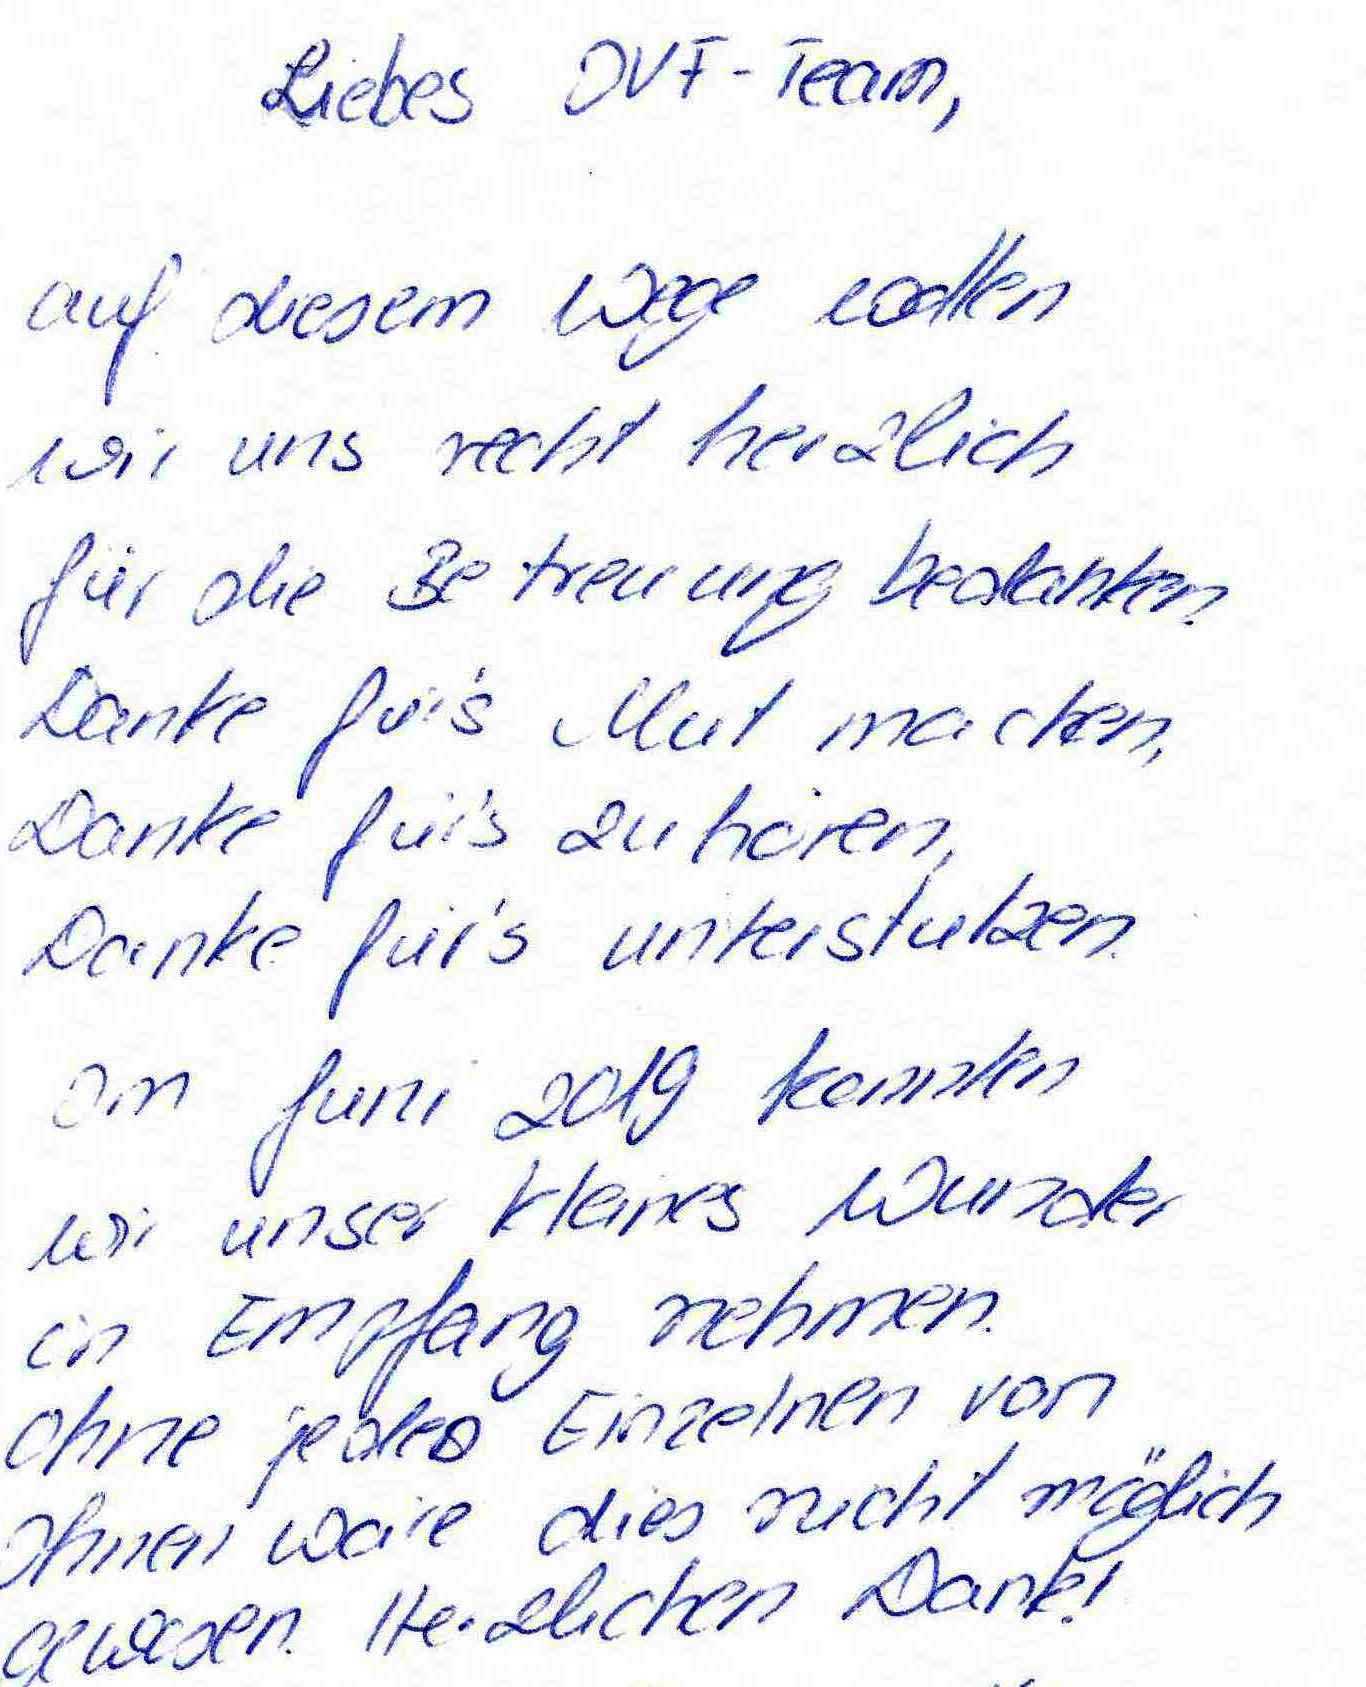 Liebes IVF-Team,
auf diesem Wege wollen
wir uns recht herzlich
für die Betreuung bedanken.
Danke für's Mut machen,
Danke für's zuhören,
Danke für's unterstützen.
Im Juni 2019 konnten
wir unser kleines Wunder
in Empfang nehmen.
Ohne jeden Einzelnen von
Ihnen wäre dies nicht möglich
gewesen. Herzlichen Dank!